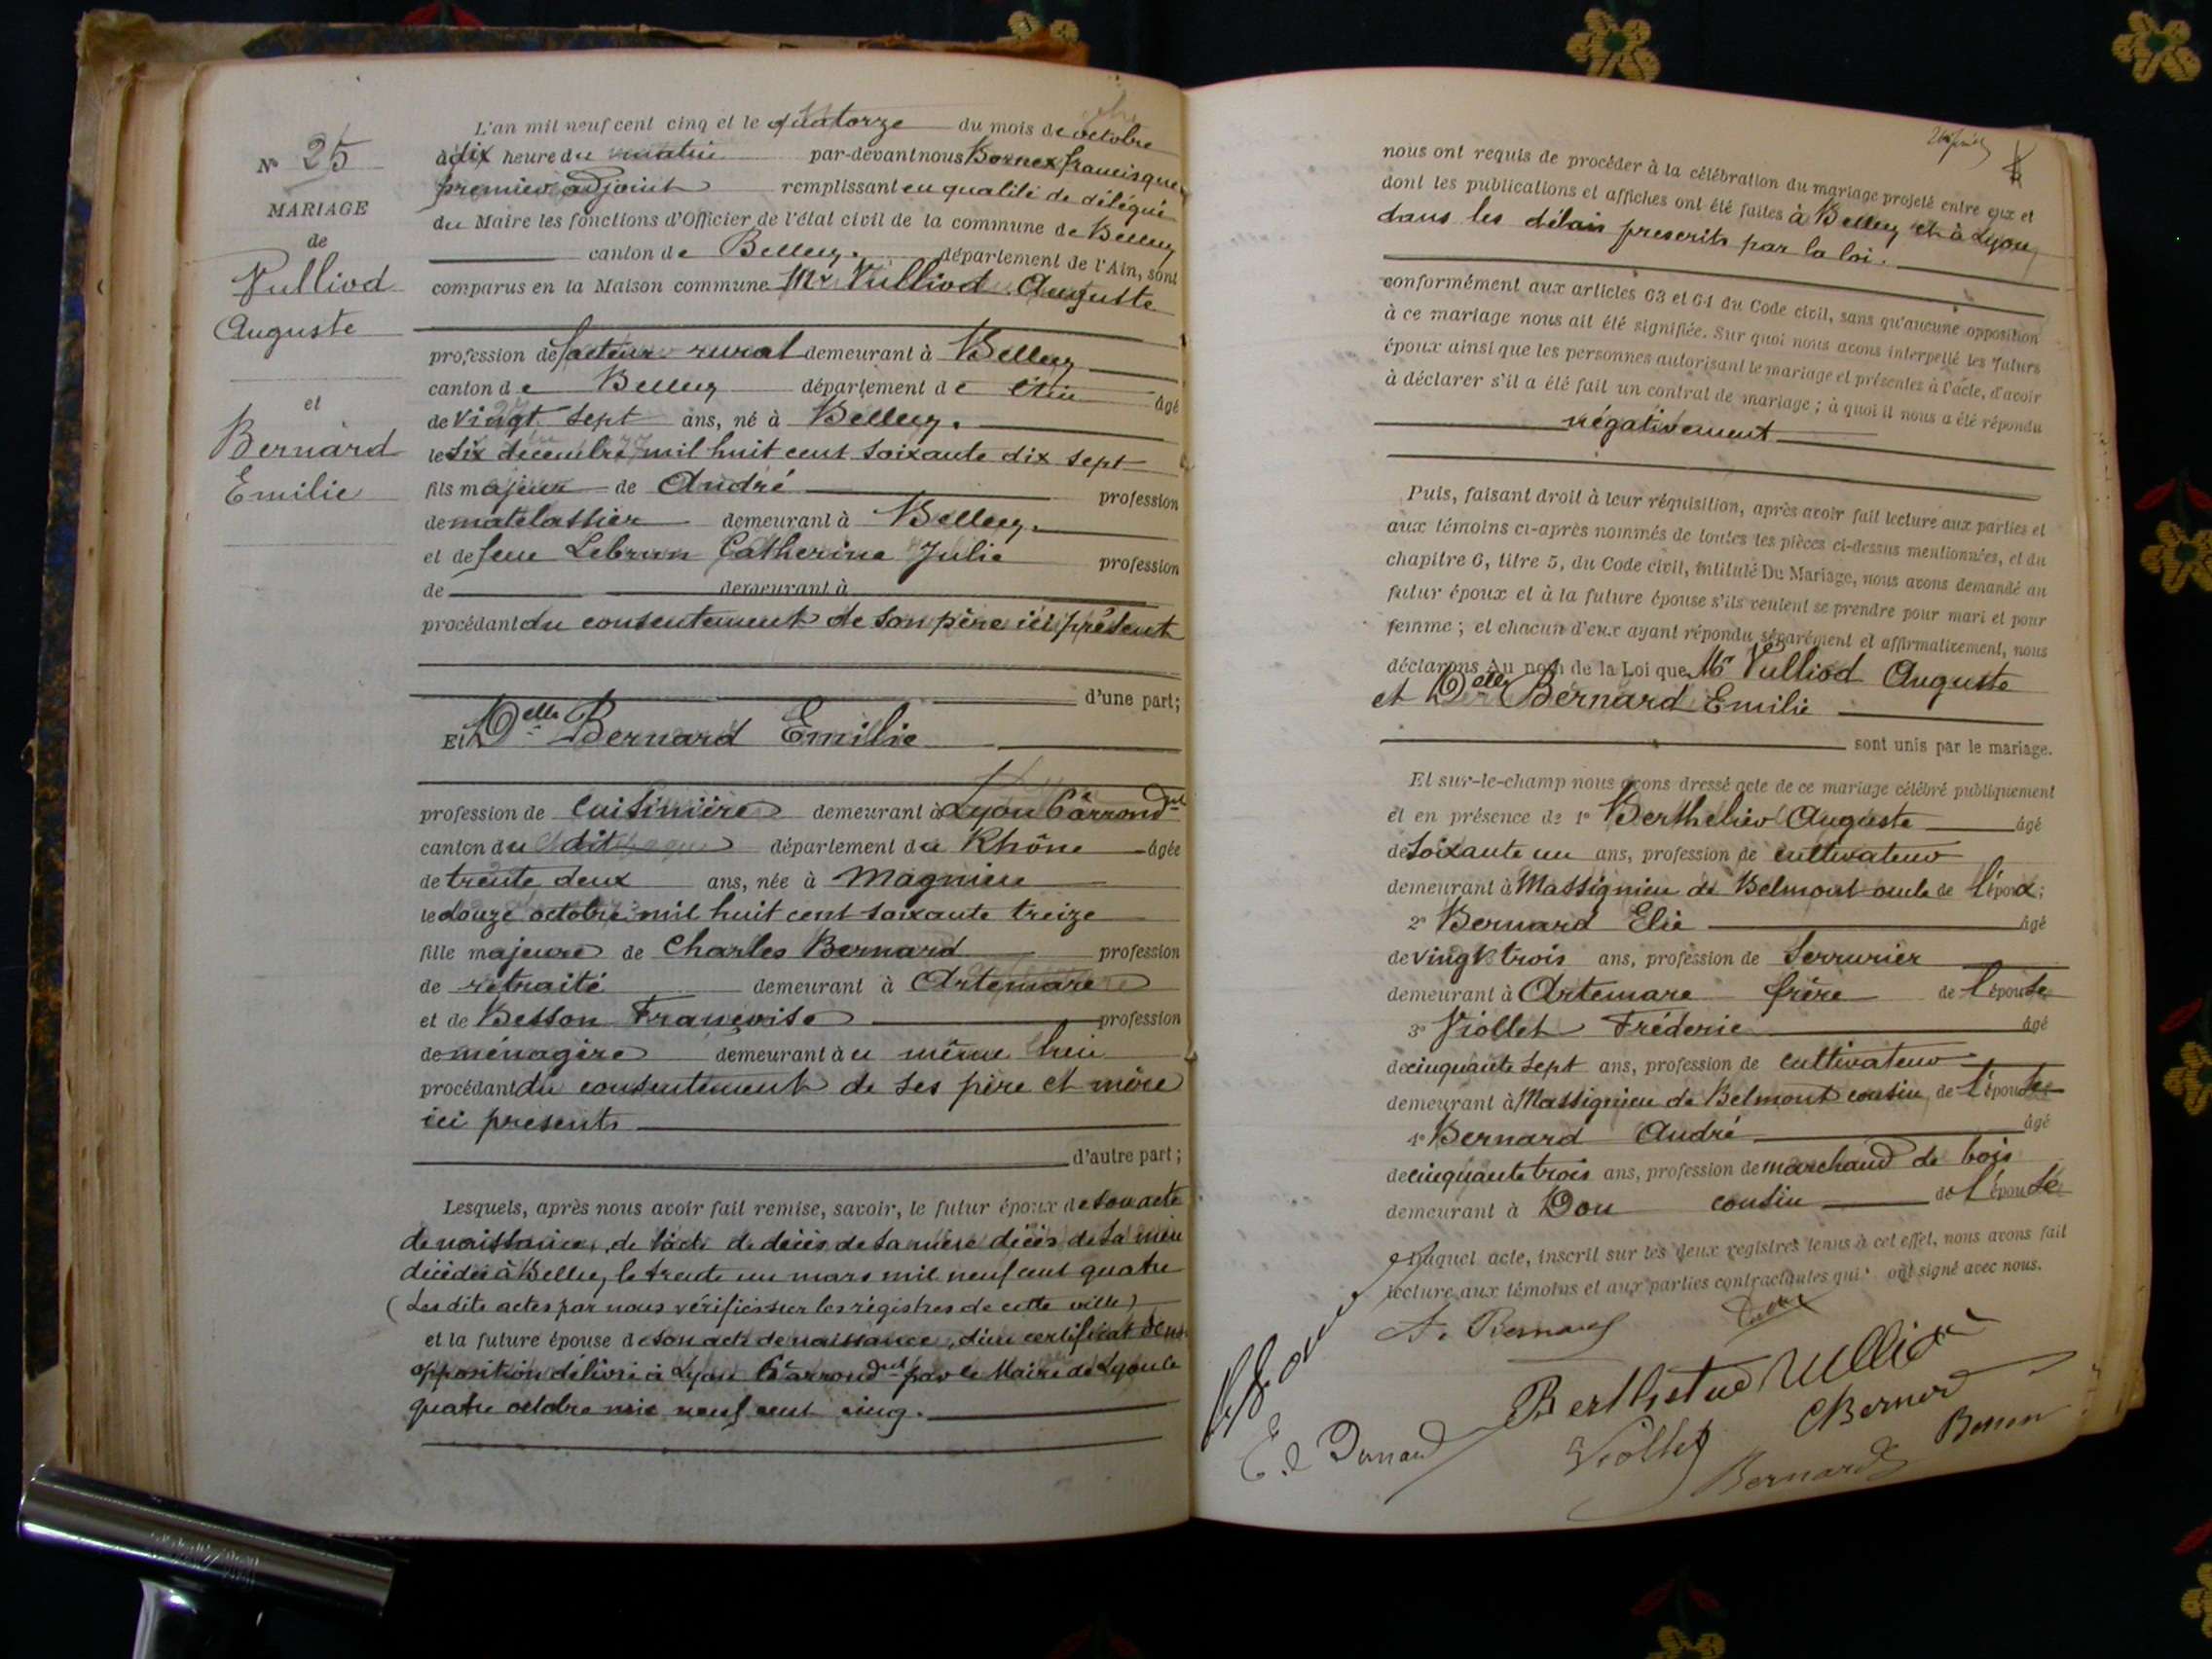 N° 25
MARIAGE
de
Vulliod
Auguste
et
Bernard
Emilie
L'an mil neuf cent cinq et le quatorze du mois de octobre
à dix heure du matin par-devant nous Bornex francisque
premier adjoint remplissant en qualité de délégué
du Maire les fonctions d'Officier de l'état civil de la commune de Belley
canton de Belley. département de l'Ain, sont
comparus en la Maison commune Mr Vulliod Auguste
profession de facteur rural demeurant à Belley
canton de Belley département de Ain âgé
de vingt sept ans, né à Belley.
le six decembre mil huit cent soixante dix sept
fils majeur de André profession
de matelassier demeurant à Belley.
et de feue Lebrun Catherine Julie profession
de demeurant à
procédant du consentement de son père ici présent
d'une part;
Et Delle Bernard Emilie
profession de cuisinière demeurant à Lyon 6e arrondt
canton du dit département du Rhône âgée
de trente deux ans, née à Magnieu
le douze octobre mil huit cent soixante treize
fille majeure de Charles Bernard profession
de retraité demeurant à Artemare
et de Besson Françoise profession
de ménagère demeurant au même lieu
procédant du consentement de ses père et mère
ici presents
d'autre part;
Lesquels, après nous avoir fait remise, savoir, le futur époux de son acte
de naissance, de l'acte de décès de sa mère décès de sa mère
décédée à Belley, le trente un mars mil neuf cent quatre
(Les dits actes par nous vérifiés sur les régistres de cette ville)
et la future épouse de son acte de naissance, d'un certificat de non
opposition délivré à Lyon 6e arrondt par le Maire de Lyon le
quatre octobre mil neuf cent cinq.
nous ont requis de procéder à la célébration du mariage projeté entre eux et
dont les publications et affiches ont été faites à Belley et à Lyon
dans les délais prescrits par la loi.
conformément aux articles 63 et 64 du Code civil, sans qu'aucune opposition
à ce mariage nous ait été signifiée. Sur quoi nous avons interpellé les futurs
époux ainsi que les personnes autorisant le mariage et présentes à l'acte, d'avoir
à déclarer s'il a été fait un contrat de mariage; à quoi il nous a été répondu
négativement
Puis, faisant droit à leur réquisition, après avoir fait lecture aux parties et
aux témoins ci-après nommés de toutes les pièces ci-dessus mentionnées, et du
chapitre 6, titre 5, du Code civil, intitulé Du Mariage, nous avons demandé au
futur époux et à la future épouse s'ils veulent se prendre pour mari et pour
femme; et chacun d'eux ayant répondu séparément et affirmativement, nous
déclarons Au nom de la Loi que Mr Vulliod Auguste
et Delle Bernard Emilie
sont unis par le mariage.
Et sur-le-champ nous avons dressé acte de ce mariage célébré publiquement
et en présence de 1° Berthelier Auguste âgé
de soixante un ans, profession de cultivateur
demeurant à Massignieu de Belmont oncle de l'époux;
2° Bernard Elie âgé
de vingt trois ans, profession de serrurier
demeurant à Artemare frère de l'épouse
3° Viollet Fréderic âgé
de cinquante sept ans, profession de cultivateur
demeurant à Massignieu de Belmont cousin de l'épouse
4° Bernard André âgé
de cinquante trois ans, profession de marchand de bois
demeurant à Don cousin de l'épouse
Duquel acte, inscrit sur les deux registres tenus à cet effet, nous avons fait
lecture aux témoins et aux parties contractantes qui ont signé avec nous.
Vulliod
Viollet
Bernard